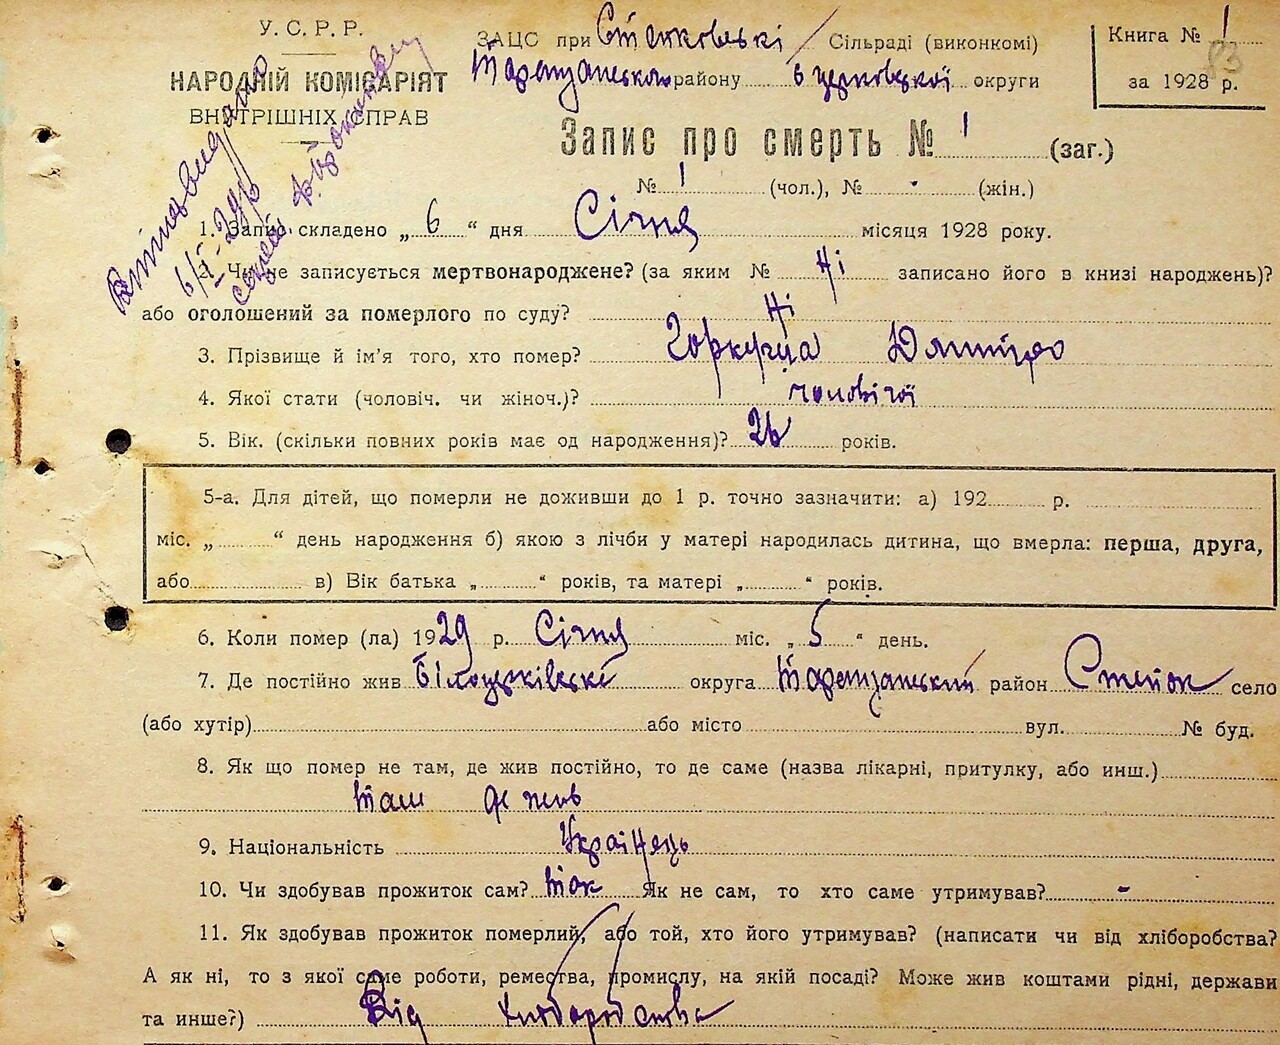 У. С. Р. Р.
НАРОДНІЙ КОМІСАРІЯТ
ВНУТРІШНІХ СПРАВ
ЗАЦС при Стенковські Сільраді (виконкомі)
району Б церковської округи
Книга № 1
за 1928 р.
83
Запис про смерть № 1 (заг.)
№ 1 (чол.), № - (жін.)
1. Запис складено „ 6 “ дня Січня місяця 1928 року.
2. Чи не записується мертвонароджене? (за яким № Ні записано його в книзі народжень)?
або оголошений за померлого по суду? Ні
3. Прізвище й ім'я того, хто помер? Горкуша Дмитро
4. Якої стати (чоловіч. чи жіноч.)? чоловічої
5. Вік. (скільки повних років має од народження)? 26 років.
5-а. Для дітей, що померли не доживши до 1 р. точно зазначити: а) 192 р.
міс. „ “ день народження б) якою з лічби у матері народилась дитина, що вмерла: перша, друга,
або в) Вік батька „ “ років, та матері „ “ років.
6. Коли помер (ла) 1929 р. Січня міс. „ 5 “ день.
7. Де постійно жив Білоцерківські округа Таращанський район село
(або хутір) або місто вул. № буд.
8. Як що помер не там, де жив постійно, то де саме (назва лікарні, притулку, або инш.)
там де жив
9. Національність Українець
10. Чи здобував прожиток сам? так Як не сам, то хто саме утримував? -
11. Як здобував прожиток померлий, або той, хто його утримував? (написати чи від хліборобства?
А як ні, то з якої саме роботи, ремества, промислу, на якій посаді? Може жив коштами рідні, держави
та инше?) Від хліборобства